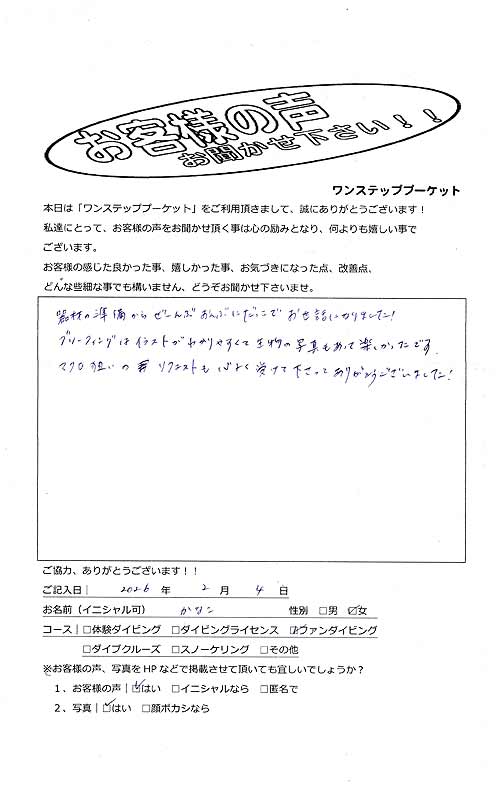 お客様の声
お聞かせ下さい！！
ワンステッププーケット
本日は「ワンステッププーケット」をご利用頂きまして、誠にありがとうございます！
私達にとって、お客様の声をお聞かせ頂く事は心の励みとなり、何よりも嬉しい事で
ございます。
お客様の感じた良かった事、嬉しかった事、お気づきになった点、改善点、
どんな些細な事でも構いません、どうぞお聞かせ下さいませ。
器材の準備からぜーんぶおんぶにだっこでお世話になりました!
ブリーフィングはイラストがわかりやすくて生物の写真もあって楽しかったです。
マクロ狙いのリクエストも快く受けて下さってありがとうございました!
ご協力、ありがとうございます！！
ご記入日｜ 2026 年 2 月 4 日
お名前（イニシャル可） かなこ 性別 □男 ☑女
コース｜□体験ダイビング □ダイビングライセンス ☑ファンダイビング
□ダイブクルーズ □スノーケリング □その他
※お客様の声、写真をHPなどで掲載させて頂いても宜しいでしょうか？
1、お客様の声｜☑はい □イニシャルなら □匿名で
2、写真｜☑はい □顔ボカシなら